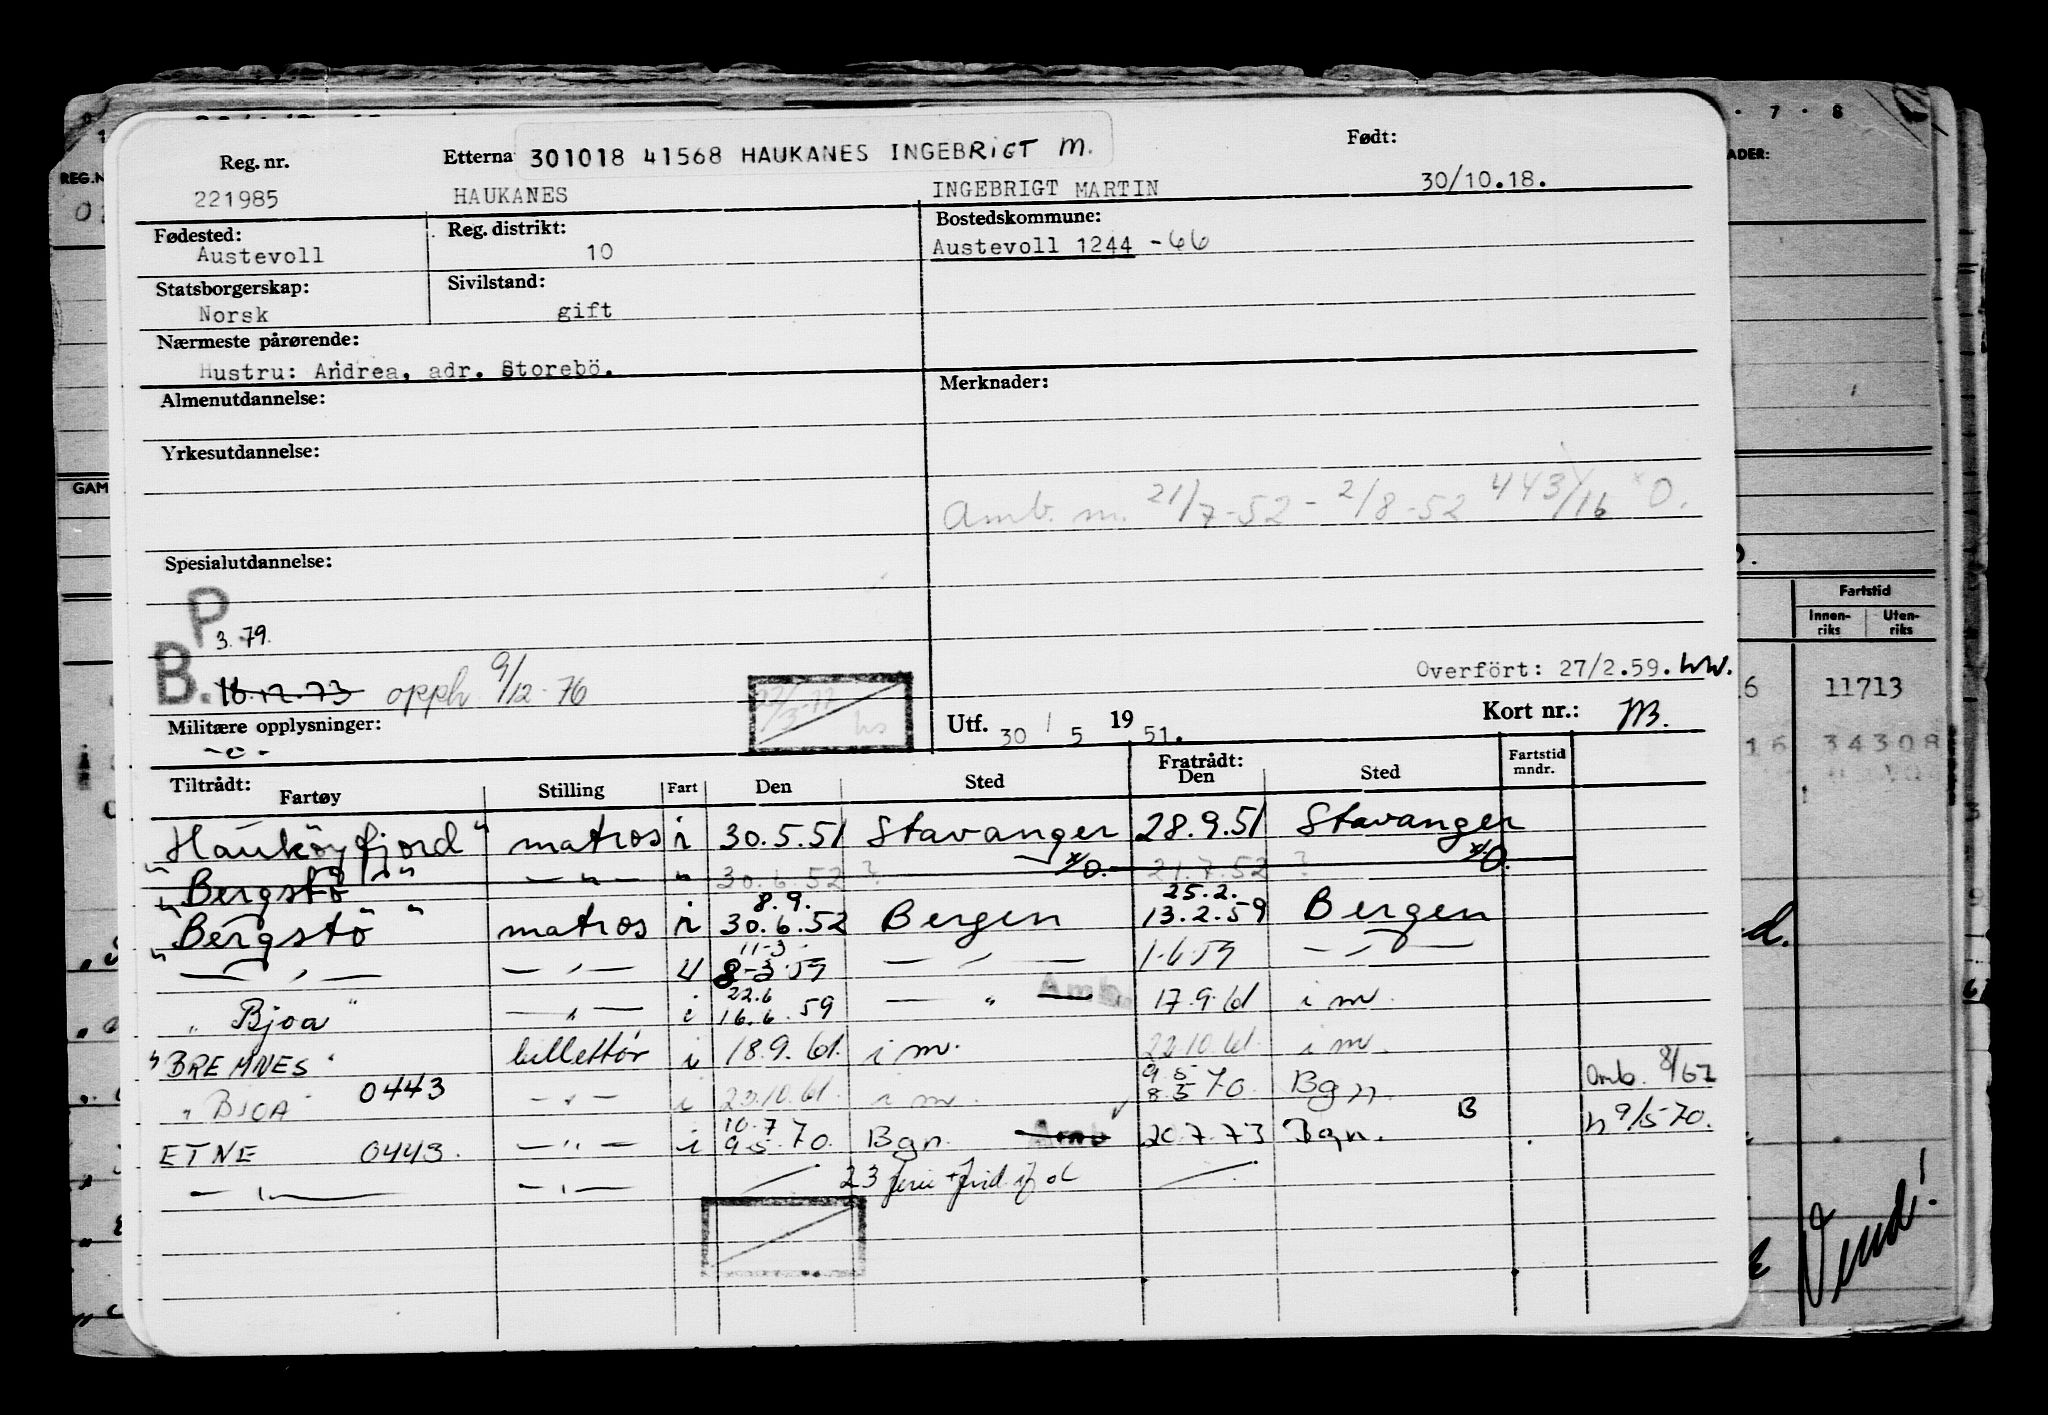 Reg. nr. Etterna 301018 41568 HAUKANES INGEBRIGT M. Født:
221985 HAUKANES INGEBRIGT MARTIN 30/10.18.
Fødested: Reg. distrikt: Bostedskommune:
Austevoll 10 Austevoll 1244 -66
Statsborgerskap: Sivilstand:
Norsk gift
Nærmeste pårørende:
Hustru: Andrea, adr. Storebö.
Almenutdannelse: Merknader:
Yrkesutdannelse:
Amb. m. 21/7-52 - 2/8-52 443/16 O.
Spesialutdannelse:
P 3.79.
B. 18.12.73 opph 9/12-76
Overfört: 27/2.59.
Militære opplysninger: Utf. 30 / 5 1951. Kort nr.:
-o-
Tiltrådt: Fratrådt: Fartstid
Fartøy Stilling Fart Den Sted Den Sted mndr.
"Hauköyfjord" matros i 30.5.51 Stavanger 28.9.51 Stavanger
"Bergstö" — " — " 30.6.52 ? O. 21.7.52 ? O.
8.9. 25.2.
"Bergstö" matros i 30.6.52 Bergen 13.2.59 Bergen
11-3
— " — — " — 8-3-59 — " — 1-6-59 — " —
22.6
"Bjoa" — " — i 16.6.59 — " — Amb. 17.9.61 i m.
"BREMNES" billettör i 18.9.61. i m. 22.10.61. i m.
9.5
"BJOA" 0443 — " — i 23.10.61. i m. 8.5.70. Bgn. Amb. 8/67
10.7
ETNE 0443. — " — i 9.5.70. Bgn. Amb 20.7.73 Bgn. B 9/5-70.
— " — — " — 23
REG.N
GAM
7 · 8
ADER:
Fartstid
Innen-riks Uten-riks
11713
16 34308
Vend!